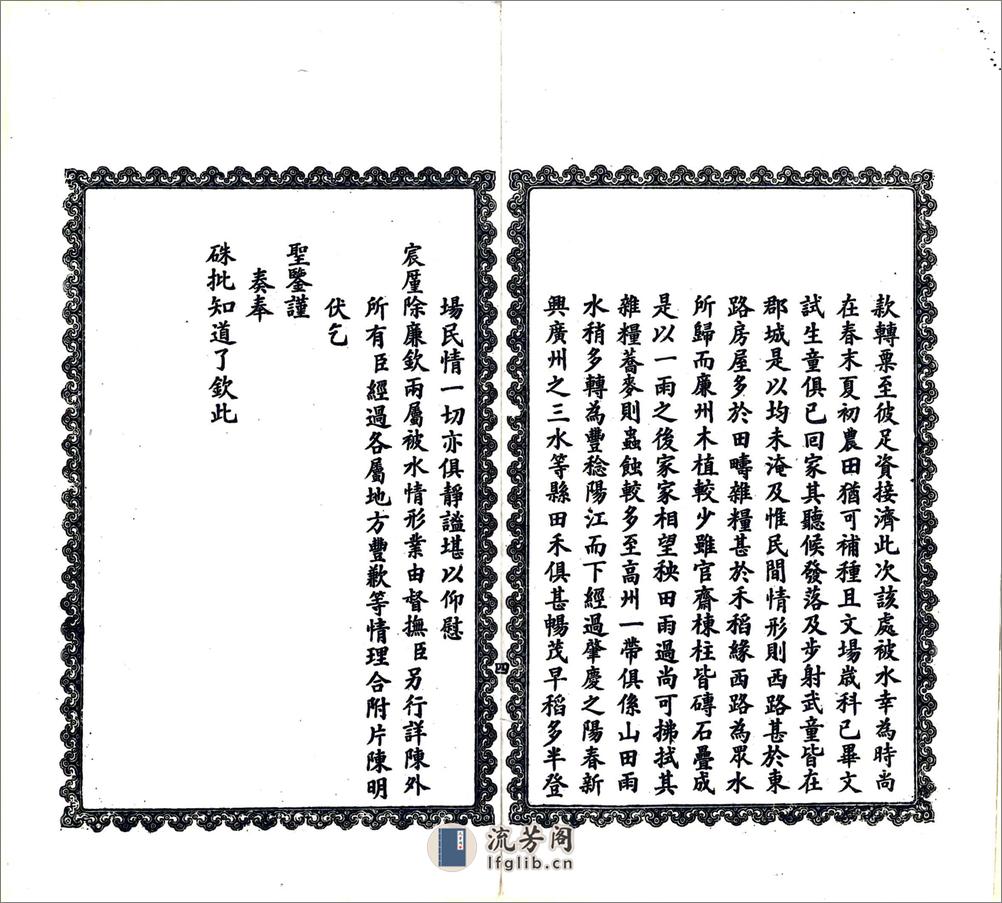 款轉票至彼足資接濟此次該處被水幸為時尚
在春末夏初農田猶可補種且文場歲科已畢文
試生童俱已回家其聽候發落及步射武童皆在
郡城是以均未淹及惟民間情形則西路甚於東
路房屋多於田疇雜糧甚於禾稻緣西路為眾水
所歸而廉州木植較少雖官齋棟柱皆磚石疊成
是以一雨之後家家相望秧田雨過尚可拂拭其
雜糧蕎麥則蟲蝕較多至高州一帶俱係山田雨
水稍多轉為豐稔陽江而下經過肇慶之陽春新
興廣州之三水等縣田禾俱甚暢茂早稻多半登
場民情一切亦俱靜謐堪以仰慰
宸廑除廉欽兩屬被水情形業由督撫臣另行詳陳外
所有臣經過各屬地方豐歉等情理合附片陳明
伏乞
聖鑒謹
奏奉
硃批知道了欽此
四
流芳阁
lfglib.cn